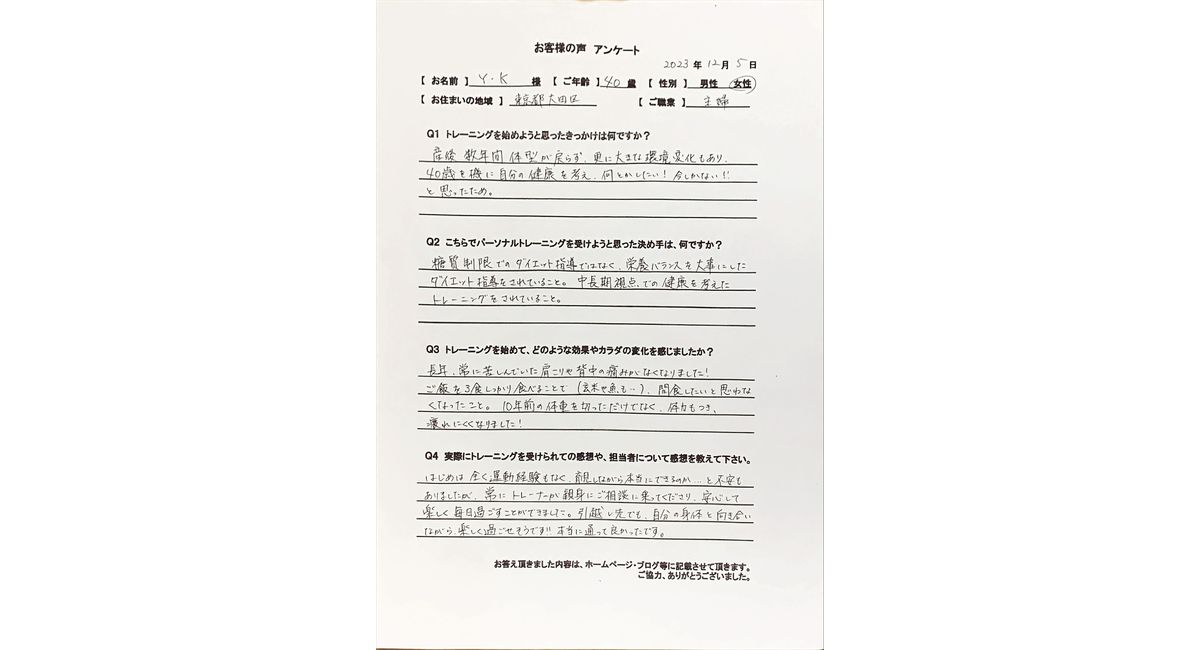 お客様の声 アンケート
2023 年 12 月 5 日
【 お名前 】 Y・K 様 【 ご年齢 】 40 歳 【 性別 】 男性 女性
【 お住まいの地域 】 東京都大田区 【 ご職業 】 主婦
Q1 トレーニングを始めようと思ったきっかけは何ですか？
産後 数年間 体型が戻らず、更に大きな環境変化もあり、
40歳を機に自分の健康を考え、何とかしたい！今しかない!!
と思ったため。
Q2 こちらでパーソナルトレーニングを受けようと思った決め手は、何ですか？
糖質制限でのダイエット指導ではなく、栄養バランスを大事にした
ダイエット指導をされていること。中長期視点での健康を考えた
トレーニングをされていること。
Q3 トレーニングを始めて、どのような効果やカラダの変化を感じましたか？
長年、常に苦しんでいた肩こりや背中の痛みがなくなりました！
ご飯を3食しっかり食べることで（玄米や魚も…）、間食したいと思わな
くなったこと。10年前の体重を切っただけでなく、体力もつき、
疲れにくくなりました！
Q4 実際にトレーニングを受けられての感想や、担当者について感想を教えて下さい。
はじめは全く運動経験もなく、育児しながら本当にできるのか…と不安も
ありましたが、常にトレーナーが親身にご相談に乗ってくださり、安心して
楽しく毎日過ごすことができました。引越し先でも、自分の身体と向き合い
ながら、楽しく過ごせそうです!! 本当に通って良かったです。
お答え頂きました内容は、ホームページ・ブログ等に記載させて頂きます。
ご協力、ありがとうございました。